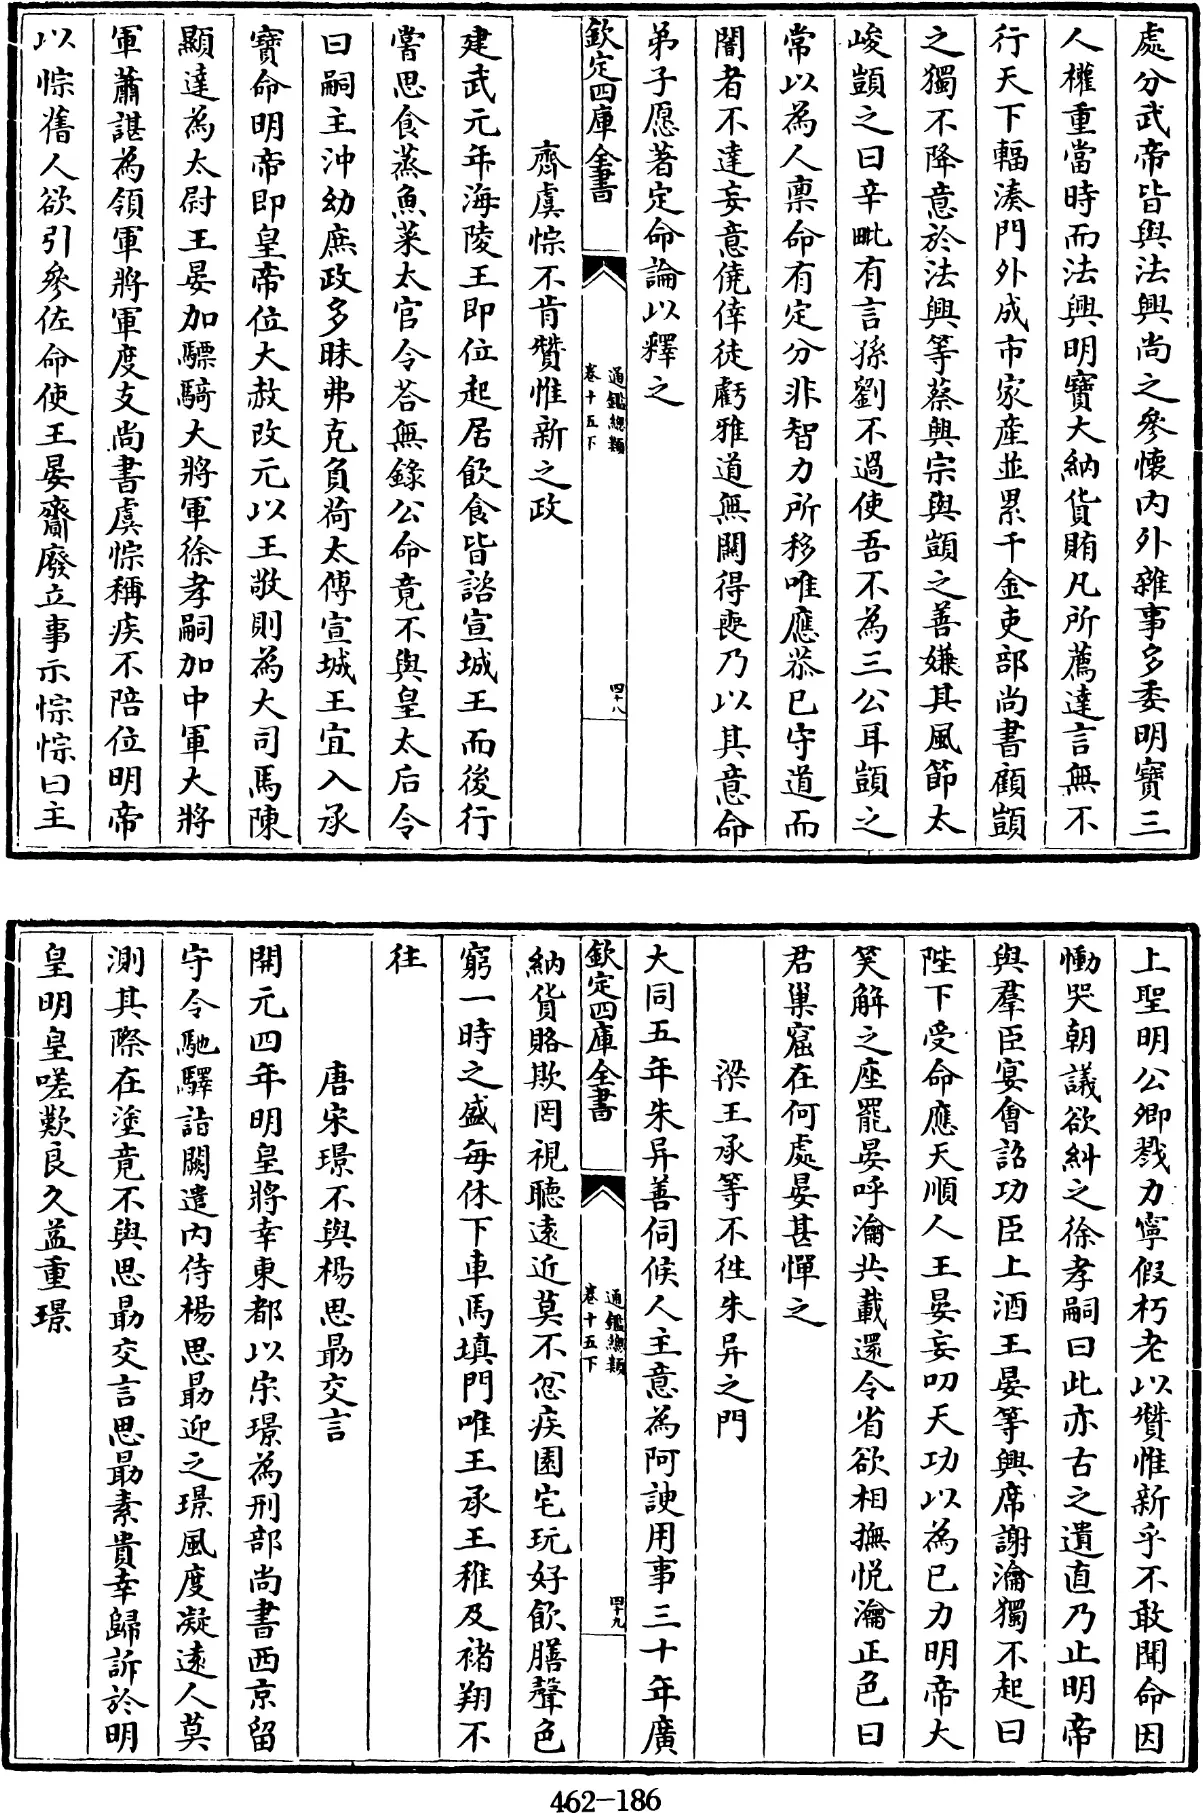 處分武帝皆與法興尚之參懷内外雜事多委明寶三
人權重當時而法興明寶大納貨賄凡所薦達言無不
行天下輻湊門外成市家產並累千金吏部尚書顧顗
之獨不降意於法興等蔡興宗與顗之善嫌其風節太
峻顗之曰辛毗有言孫劉不過使吾不為三公耳顗之
常以為人禀命有定分非智力所移唯應恭已守道而
闇者不達妄意僥倖徒虧雅道無關得喪乃以其意命
弟子愿著定命論以釋之
欽定四庫全書
通鑑總類
卷十五下
四十八
齊虞悰不肯贊惟新之政
建武元年海陵王即位起居飲食皆諮宣城王而後行
嘗思食蒸魚菜太官令荅無錄公命竟不與皇太后令
曰嗣主沖幼庶政多昧弗克負荷太傅宣城王宜入承
寶命明帝即皇帝位大赦改元以王敬則為大司馬陳
顯達為太尉王晏加驃騎大將軍徐孝嗣加中軍大將
軍蕭諶為領軍將軍度支尚書虞悰稱疾不陪位明帝
以悰舊人欲引參佐命使王晏齎廢立事示悰悰曰主
上聖明公卿戮力寧假朽老以贊惟新乎不敢聞命因
慟哭朝議欲糾之徐孝嗣曰此亦古之遺直乃止明帝
與羣臣宴會詔功臣上酒王晏等興席謝瀹獨不起曰
陛下受命應天順人王晏妄叨天功以為已力明帝大
笑解之座罷晏呼瀹共載還令省欲相撫悅瀹正色曰
君巢窟在何處晏甚憚之
梁王承等不徃朱异之門
大同五年朱异善伺候人主意為阿諛用事三十年廣
欽定四庫全書
通鑑總類
卷十五下
四十九
納貨賂欺罔視聽遠近莫不忿疾園宅玩好飲膳聲色
窮一時之盛每休下車馬填門唯王承王稚及褚翔不
往
唐宋璟不與楊思勗交言
開元四年明皇將幸東都以宋璟為刑部尚書西京留
守令馳驛詣闕遣内侍楊思勗迎之璟風度凝遠人莫
測其際在塗竟不與思勗交言思勗素貴幸歸訴於明
皇明皇嗟歎良久益重璟
462-186